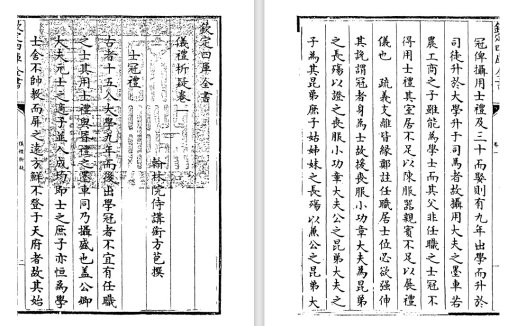 欽定四庫全書
儀禮析疑卷一
翰林院侍講銜方苞撰
士冠禮
古者十五入大學九年而後出學冠者不宜有任職
之士其用士禮與昏禮之墨車同乃攝盛也蓋公卿
大夫元士之適子並入成均即士之庶子亦恒為學
士舍不帥教而屏之遠方鮮不登于天府者故其始
欽定四庫全書
儀禮析疑
冠俾攝用士禮及三十而娶則有九年出學而升於
司徒升於大學升于司馬者故攝用大夫之墨車若
農工商之子雖能為學士而其父非任職之士冠不
得用士禮其室居不足以陳服器親賓不足以展禮
儀也 疏義支離皆緣鄭註任職居士位必欲強伸
其說謂冠者身為士故援喪服小功章大夫為昆弟
之長殤以證之喪服小功章大夫公之昆弟大夫之
子為其昆弟庶子姑姊妹之長殤以公之昆弟大
欽定四庫全書
卷一